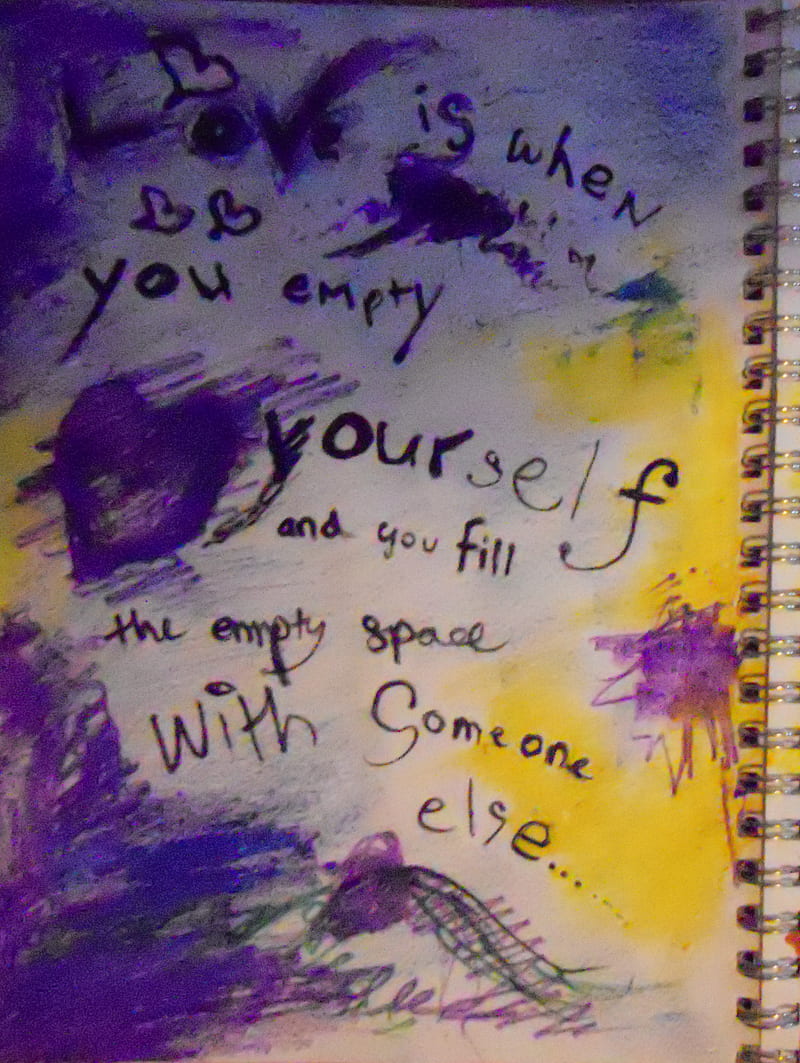 Love is when
you empty
yourself
and you fill
the empty space
with Someone
else...